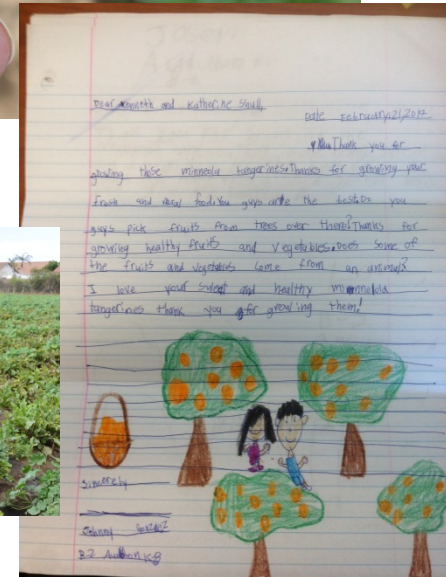 Dear Kenneth and Katherine Shull,
Date February,21,2012
Thank you for
glowing those minneola tangerines.Thanks for growing your
fresh and food.You guys are the best.Do you
guys pick fruits from trees over there?Thanks for
growing healthy fruits and vegetables.Does some of
the fruits and vegetables come from an animal?
I love your sweet and healthy minneola
tangerines thank you for growing them!
Sincerely
Johnny
B-2 K-8